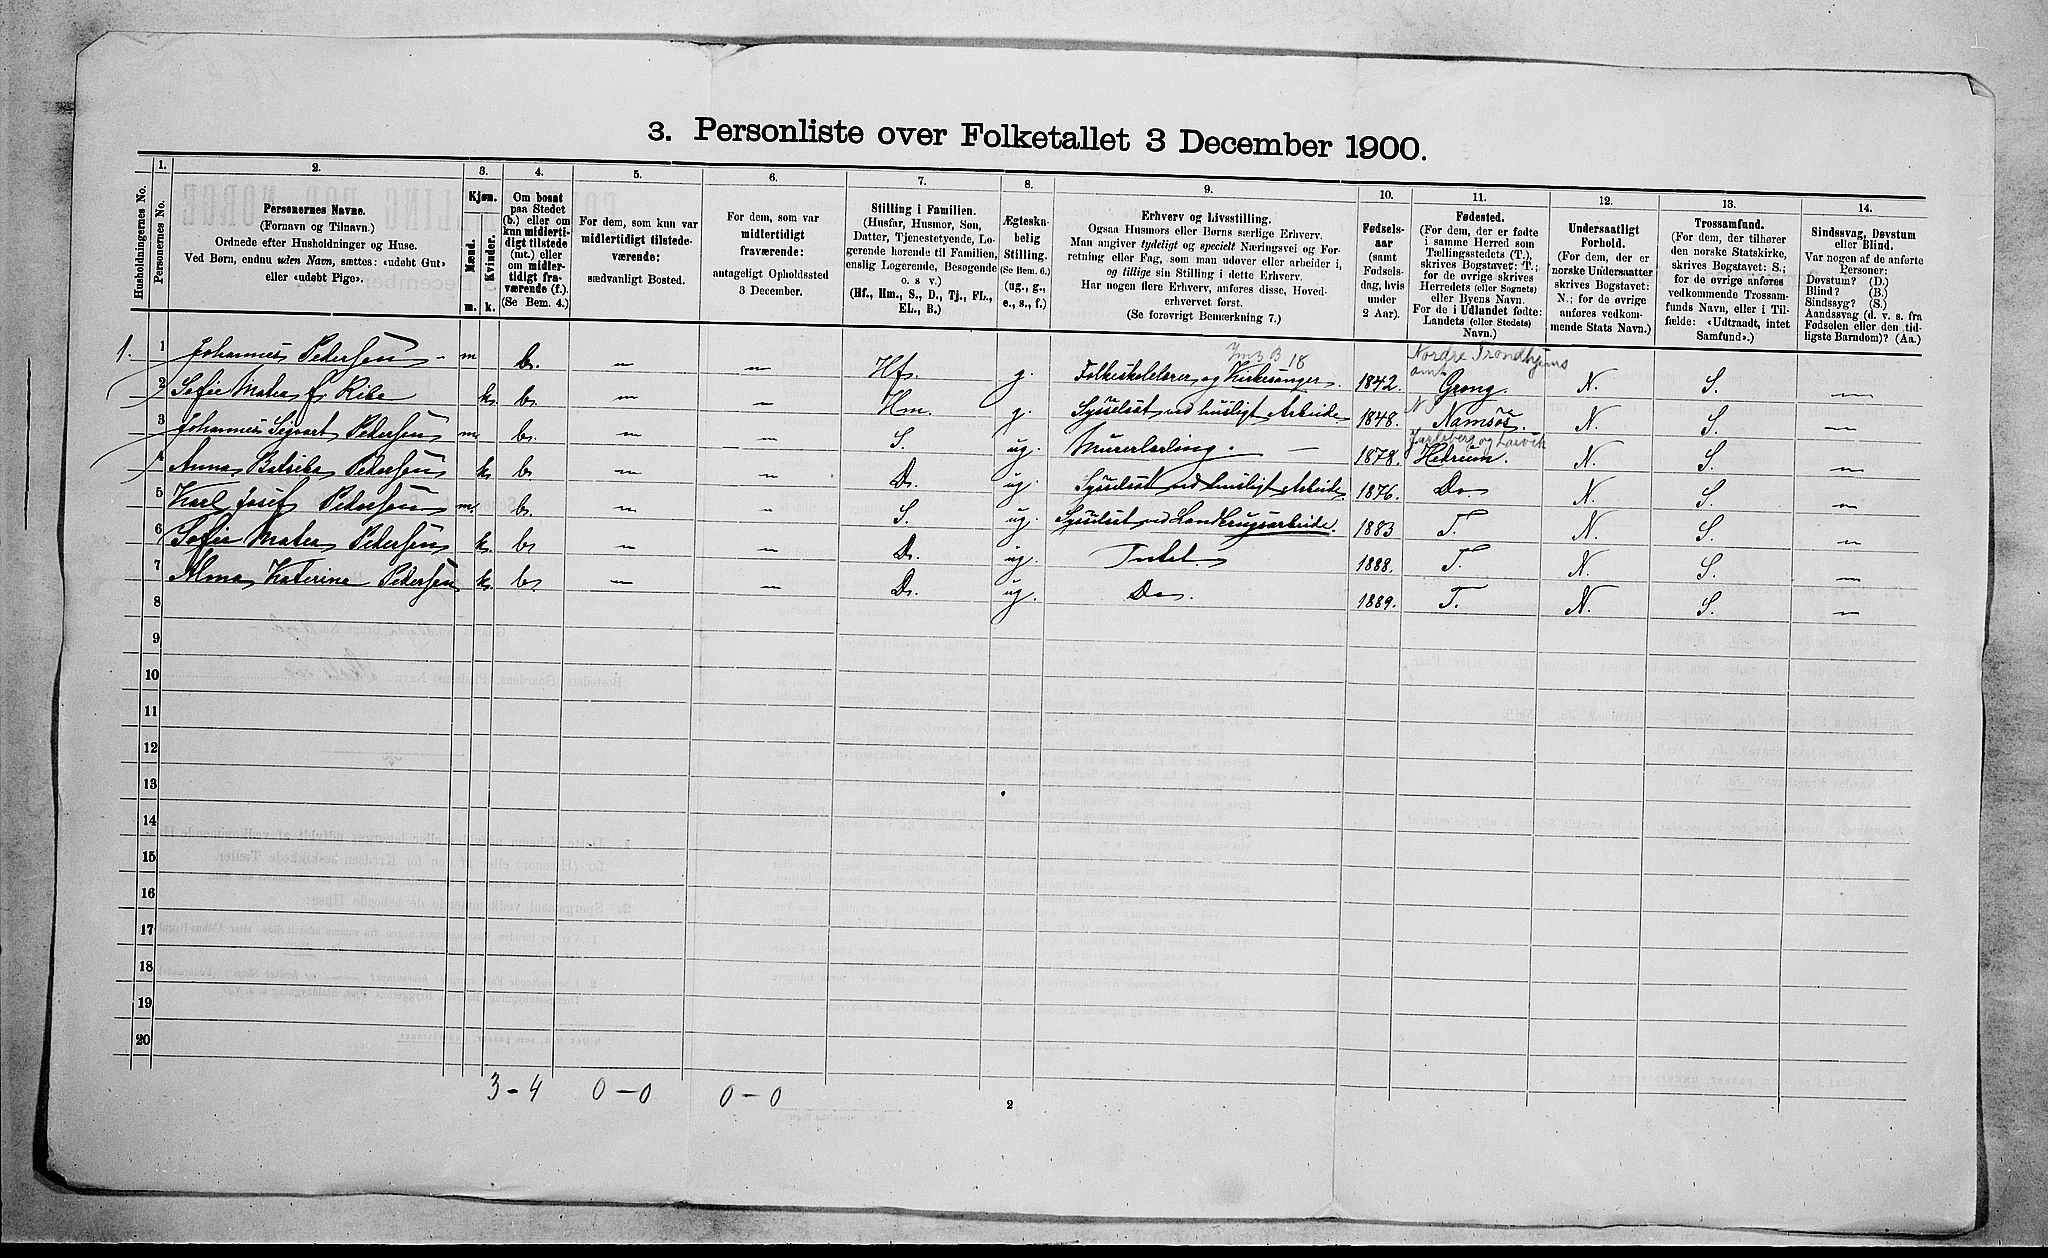 3. Personliste over Folketallet 3 December 1900.
Husholdningernes No.
1. Personernes No.
2. Personernes Navne.
(Fornavn og Tilnavn.)
Ordnede efter Husholdninger og Huse.
Ved Børn, endnu uden Navn, sættes: «udøbt Gut»
eller «udøbt Pige».
3. Kjøn.
Mænd. Kvinder.
m. k.
4. Om bosat
paa Stedet
(b.) eller om
kun midlerti-
digt tilstede
(mt.) eller
om midler-
tidigt fra-
værende (f.).
(Se Bem. 4.)
5. For dem, som kun var
midlertidigt tilstede-
værende:
sædvanligt Bosted.
6. For dem, som var
midlertidigt
fraværende:
antageligt Opholdssted
3 December.
7. Stilling i Familien.
(Husfar, Husmor, Søn,
Datter, Tjenestetyende, Lo-
gerende hørende til Familien,
enslig Logerende, Besøgende
o. s v.)
(Hf., Hm., S., D., Tj., FL.,
EL., B.)
8. Ægteska-
belig
Stilling.
(Se Bem. 6.)
(ug., g.,
e., s., f.)
9. Erhverv og Livsstilling.
Ogsaa Husmors eller Børns særlige Erhverv.
Man angiver tydeligt og specielt Næringsvei og For-
retning eller Fag, som man udøver eller arbeider i,
og tillige sin Stilling i dette Erhverv.
Har nogen flere Erhverv, anføres disse, Hoved-
erhvervet først.
(Se forøvrigt Bemærkning 7.)
10. Fødsels-
aar
(samt
Fødsels-
dag, hvis
under
2 Aar).
11. Fødested.
(For dem, der er fødte
i samme Herred som
Tællingsstedets (T.),
skrives Bogstavet: T.;
for de øvrige skrives
Herredets (eller Sognets)
eller Byens Navn.
For de i Udlandet fødte:
Landets (eller Stedets)
Navn.)
12. Undersaatligt
Forhold.
(For dem, der er
norske Undersaatter
skrives Bogstavet:
N.; for de øvrige
anføres vedkom-
mende Stats Navn.)
13. Trossamfund.
(For dem, der tilhører
den norske Statskirke,
skrives Bogstavet: S.;
for de øvrige anføres
vedkommende Trossam-
funds Navn, eller i Til-
fælde: «Udtraadt, intet
Samfund».)
14. Sindssvag, Døvstum
eller Blind.
Var nogen af de anførte
Personer:
Døvstum? (D.)
Blind? (B.)
Sindssyg? (S.)
Aandssvag (d. v. s. fra
Fødselen eller den tid-
ligste Barndom)? (Aa.)
1. 1 Johannes Pedersen - m b. — — Hf. g. Folkeskolelærer og Kirkesanger. 18 1842. Nordre Trondhjems amt Grong N. S. —
2 Sofie Matea f. Ribe k. b. — — Hm. g. Sysselsat ved husligt Arbeide 1848. Namsos. N. S. —
3 Johannes Sigvart Pedersen m. b. — — S. ug. Murerlærling. — 1878. Jarlsberg og Larvik Hedrum. N. S. —
4 Anna Batseba Pedersen k. b. — — D. ug. Sysselsat ved husligt Arbeide 1876. Do N. S. —
5 Karl Josef Pedersen m. b. — — S. ug. Sysselsat ved Landbrugsarbeide. 1883 T. N. S. —
6 Sofie Matea Pedersen k. b. — — D. ug. Intet. 1888. T. N. S. —
7 Alma Katerine Pedersen k. b. — — D. ug. Do. 1889. T. N. S. —
8
9
10
11
12
13
14
15
16
17
18
19
20
3 - 4 0 - 0 0 - 0
2